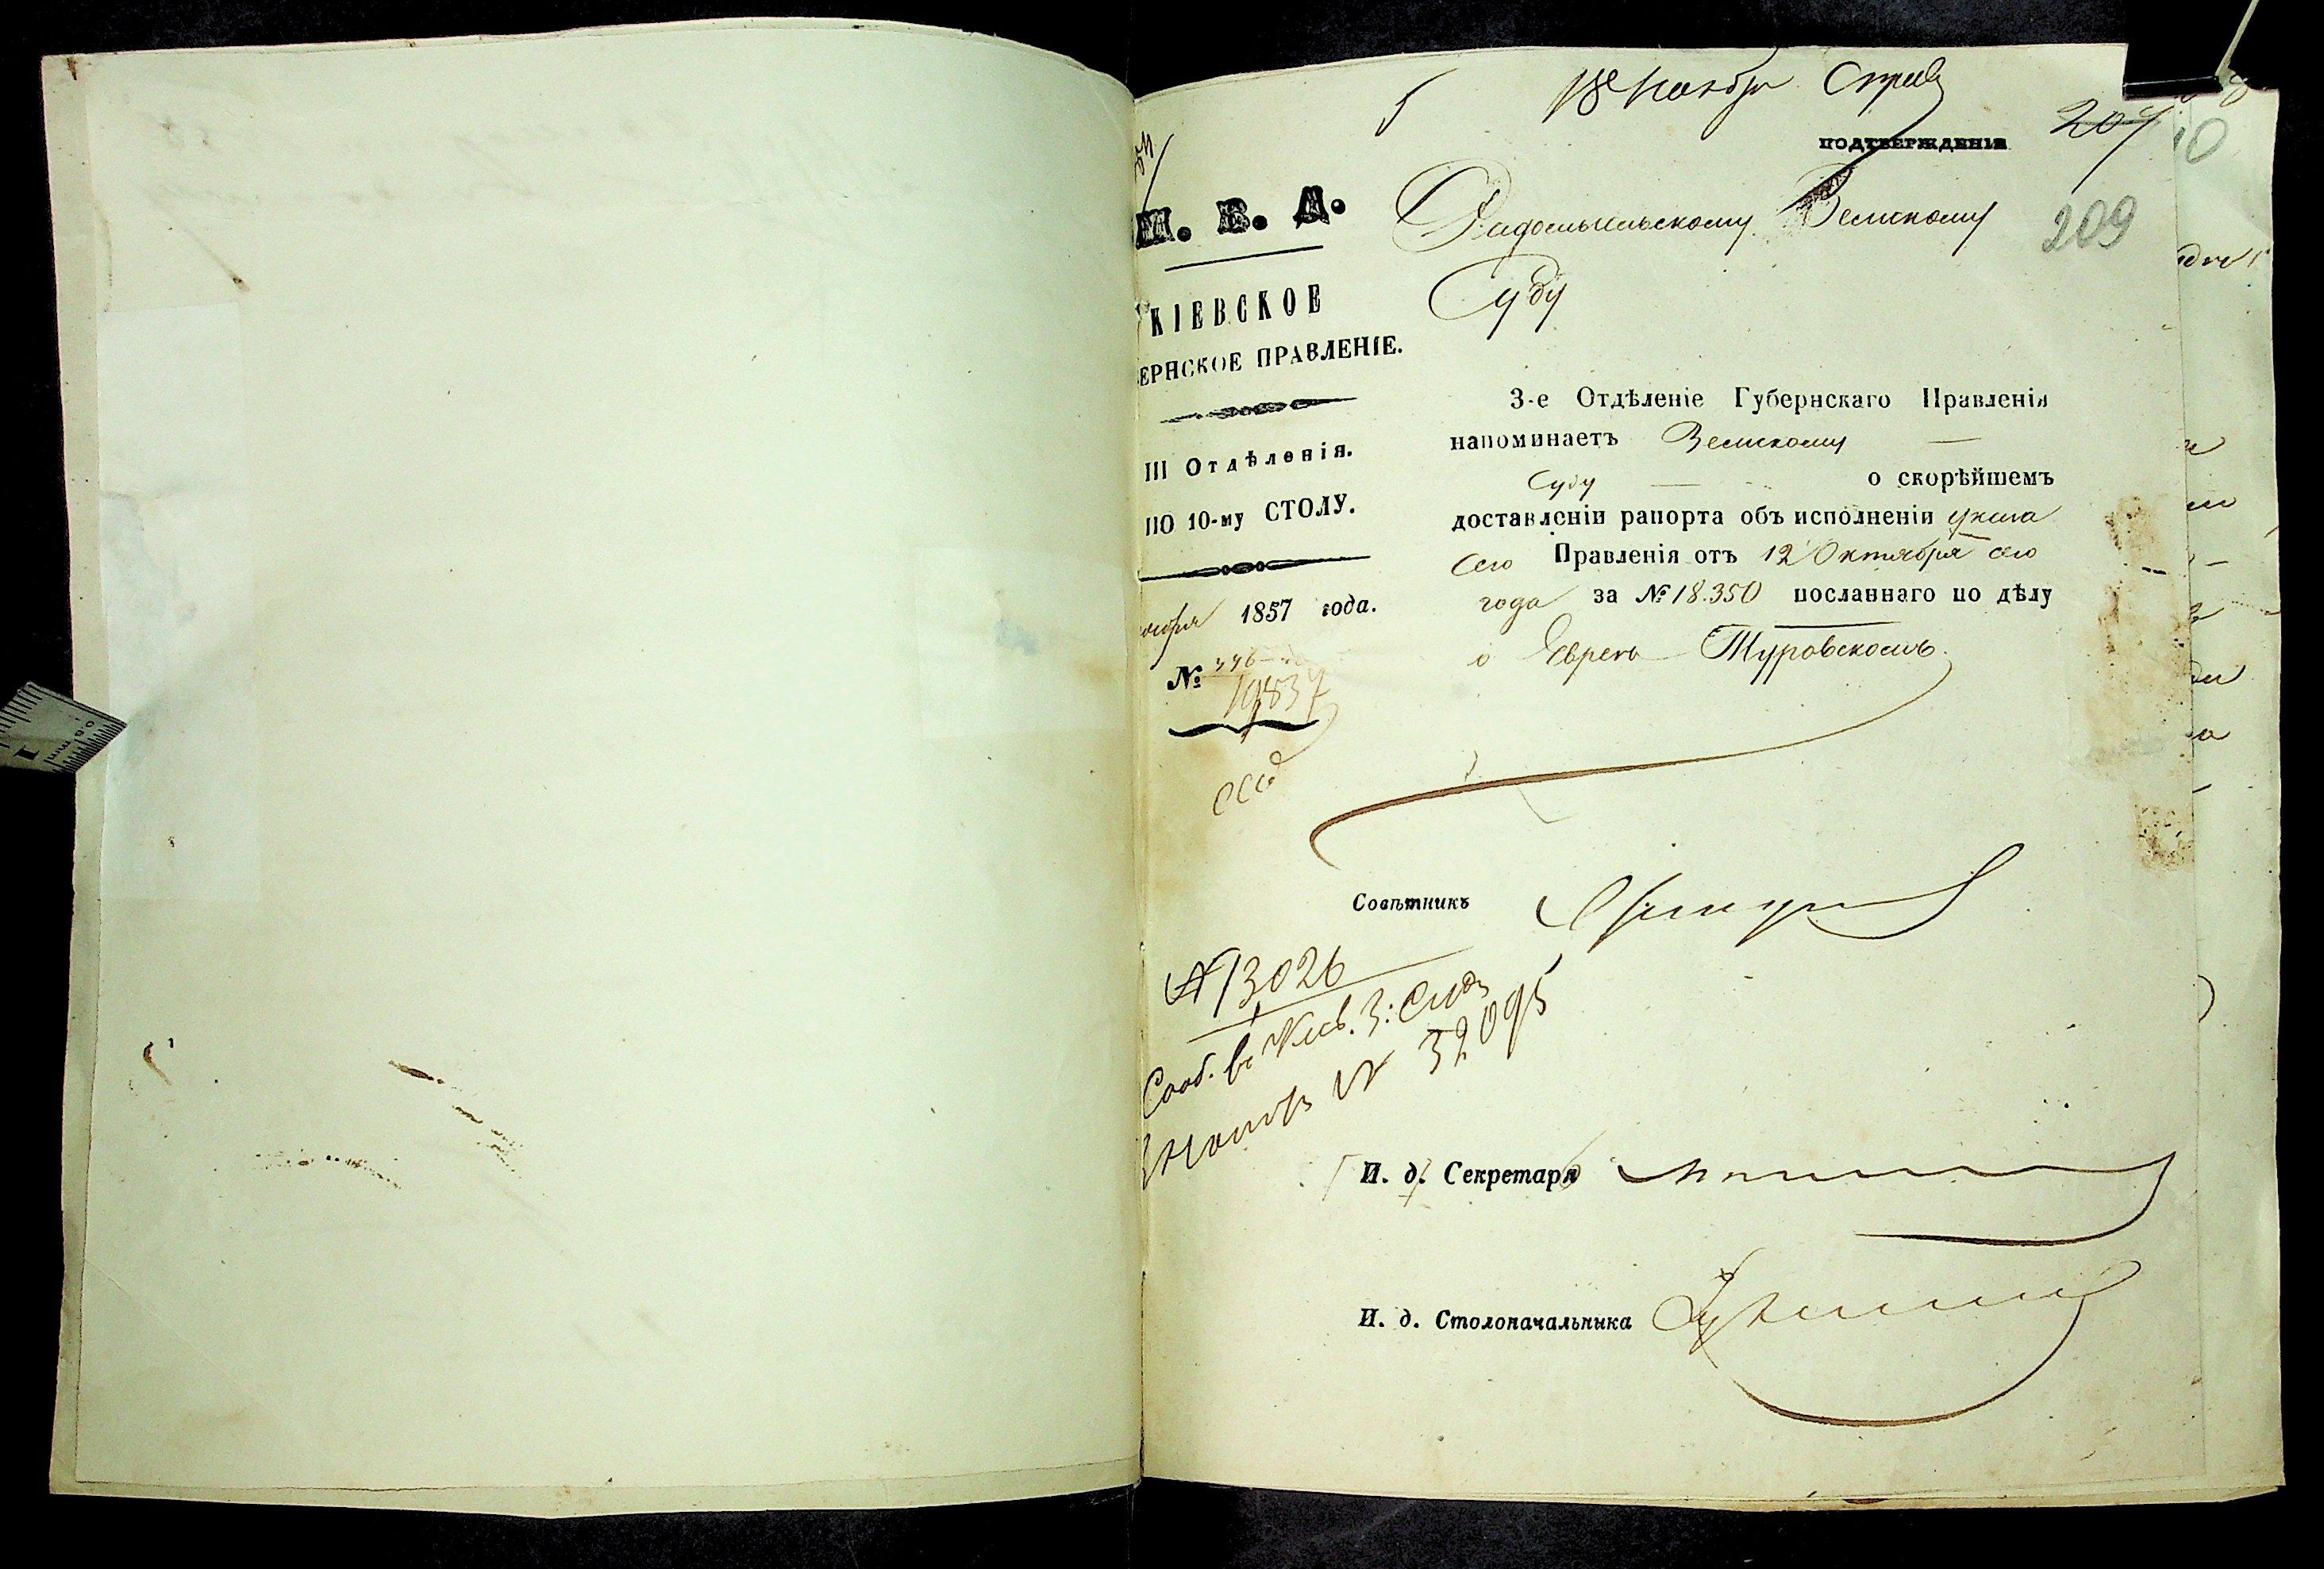 18 Ноября Справ
подтвержденіе
207
209
М. В. Д.
КІЕВСКОЕ
ЕРНСКОЕ ПРАВЛЕНІЕ.
III Отдѣленія.
ПО 10-му СТОЛУ.
1857 года.
№
19837
Радомысльскому Земскому
Суду
3-е Отдѣленіе Губернскаго Правленія
напоминаетъ Земскому
Суду о скорѣйшемъ
доставленіи рапорта объ исполненіи указа
сего Правленія отъ 12 Октября сего
года за № 18.350 посланнаго по дѣлу
о Евреѣ Туровскомъ.
Совѣтникъ
№ 13026
Сооб. въ Кіев. З: Судъ
Нояб № 32095
И. д. Секретаря
И. д. Столоначальника